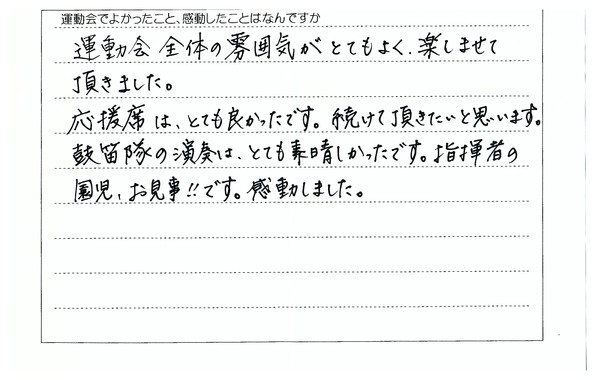 運動会でよかったこと、感動したことはなんですか
運動会全体の雰囲気がとてもよく、楽しませて
頂きました。
応援席は、とても良かったです。続けて頂きたいと思います。
鼓笛隊の演奏は、とても素晴しかったです。指揮者の
園児、お見事!!です。感動しました。